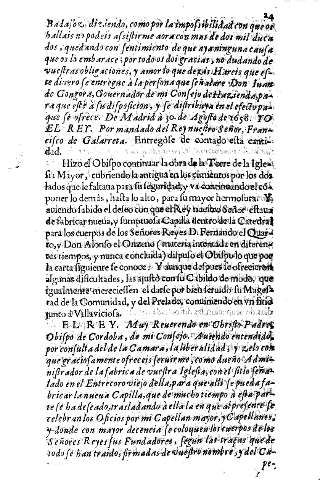 24
Badajoz, diziendo, como por la impossibilidad con que os
hallais no podeis assistirme aora con mas de dos mil duca
dos, quedando con sentimiento de que aya ninguna causa
que os la embarace; por todo os doi gracias, no dudando de
vuestras obligaciones, y amor lo que dezis. Hareis que es-
te dinero se entregue à la persona que señalare Don Juan
de Gongora, Governador de mi Consejo de Hazienda, pa-
ra que estè à su disposicion, y se distribuya en el efecto pa-
ra que se ofrece. De Madrid à 30. de Agosto de 1658. YO
EL REY. Por mandado del Rey nuestro Señor, Fran-
cisco de Galarreta. Entregòse de contado esta canti-
dad.
Hizo el Obispo continuar la obra de la Torre de la Igle-
sia Mayor, cubriendo la antigua en los cimientos por los dos
lados que le faltana para su seguridad, y va continuando el cō-
poner lo demàs, hasta lo alto, para su mayor hermosura. Y
auiendo sabido el deseo con que el Rey nuestro Señor estaua
de fabricar nueua, y sumptuosa Capilla dentro de la Catedral
para los cuerpos de los Señores Reyes D. Fernando el Quar-
to, y Don Alfonso el Onzeno (materia intentada en diferen-
tes tiempos, y nunca concluida) dispuso el Obispo lo que por
la carta siguiente se conoce: Y aunque despues se ofrecieron
algunas dificultades, las ajustò con su Cabildo de modo, que
igualmente mereciessen el darse por bien seruido su Mages-
tad de la Comunidad, y del Prelado, conuiniendo en vn sitio
junto à Villaviciosa.
EL REY. Muy Reuerendo en Christo Padre
Obispo de Cordoba, de mi Consejo. Auiendo entendido,
por consulta del de la Camara, la liberalidad, y zelo con
que graciosamente ofreceis seruirme, como dueño Admi-
nistrador de la fabrica de vuestra Iglesia, con el sitio seña-
lado en el Entrecoro viejo della, para que alli se pueda fa-
bricar la nueua Capilla, que de mucho tiempo à esta par-
te se ha deseado, trasladando à ella la en que al presente se
celebran los Oficios por mi Capellan mayor, y Capellanes,
y donde con mayor decencia se coloquen los cuerpos de los
Señores Reyes sus Fundadores, segun las traças que de
todo se han traido, firmadas de vuestro nombre, y del Ca-
pe-